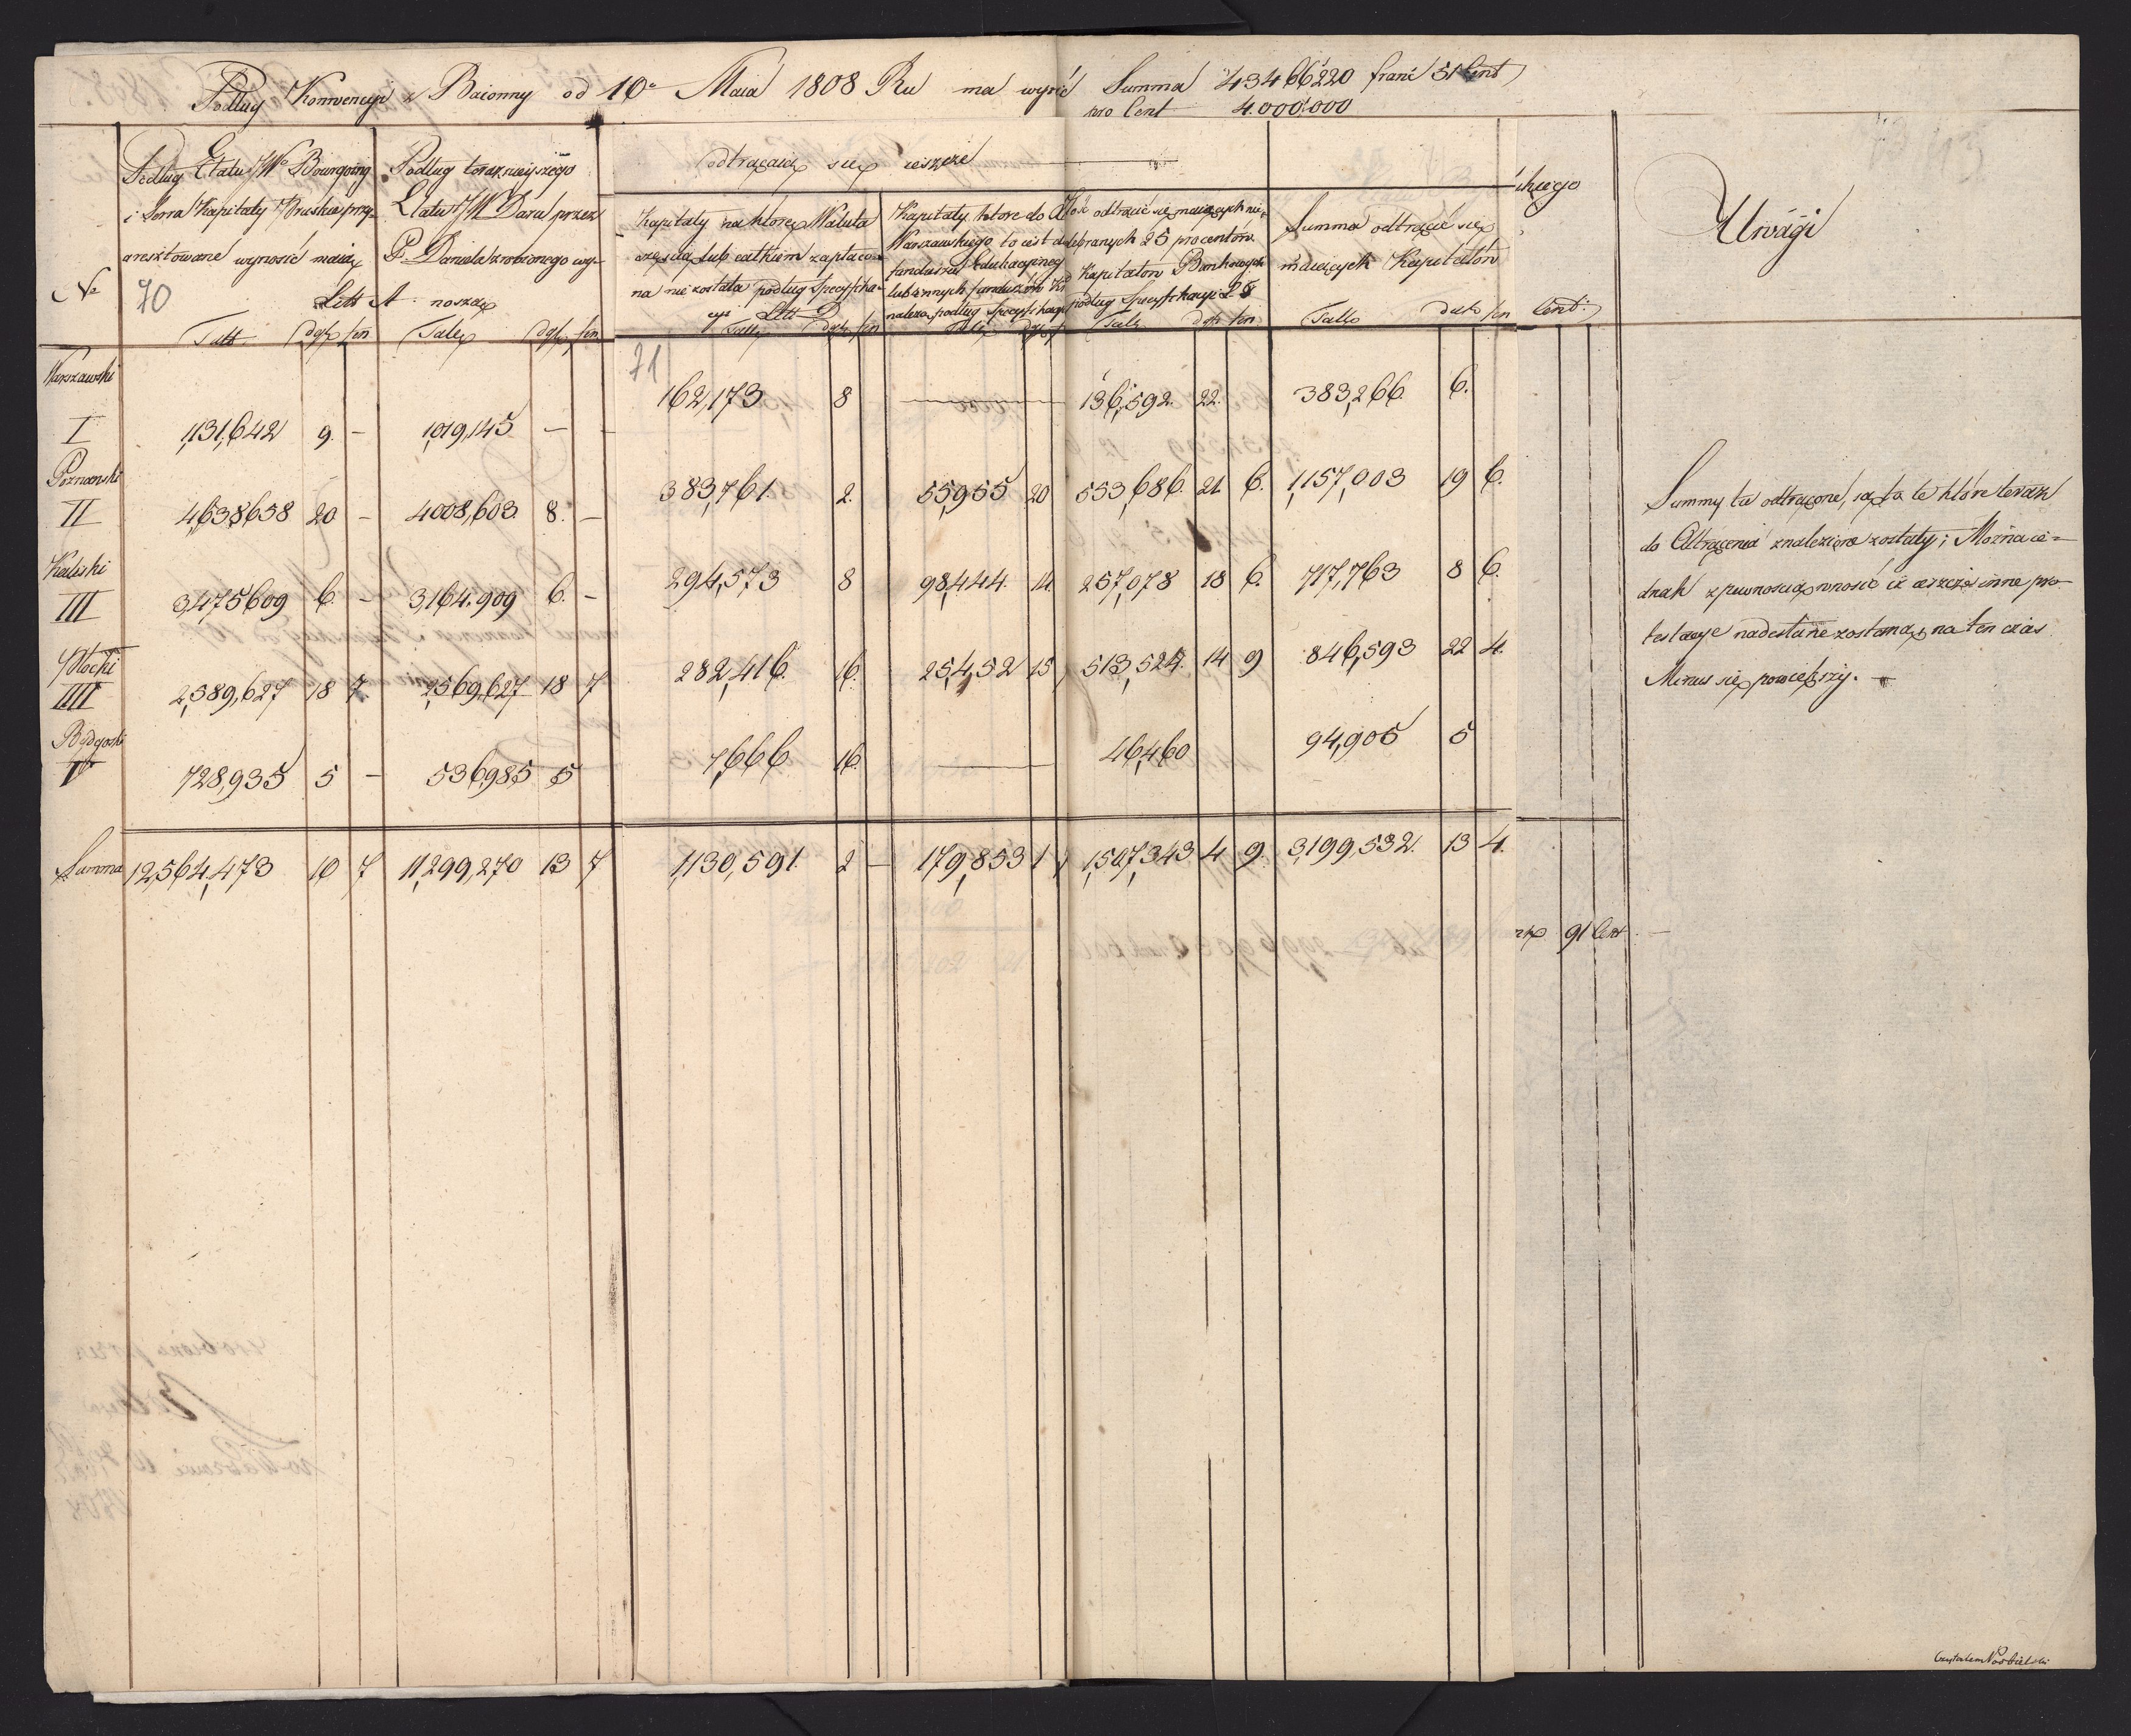 Podług Konwencyi z Baionny od 10º Maia 1808 Ru ma wyjść Summa 43466220 franc 51 Cent
pro Cent 4.000,000
Podług Etatu JWº Bourgoing
i Serra Kapitały Pruskie przy-
aresztowane wynosić maią
Nº 70
Podług teraznieyszego
Etatu JW Daru przez
P. Daniela zrobionego wy-
Litt A. noszą
odtrącaią się ieszcze
Kapitały na które Waluta
częścią lub całkiem zapłaco-
na nie została podług Specyfika-
cyi Litt D
Kapitały które do
Warszawskiego to iest do
funduszu Edukacyiney
lub innych funduszów
należą podług Specyfikacyi
odtrącić się maiących nie-
debranych 25 procentów
Kapitałów Bankowych
podług Specyfikacyi
Summa odtrącić się
maiących Kapitałów
skiego
Cent:
Uwagi
Tall. dgk fen Tall dgk fen Tall dgk fen Tall dgk f Tall dgk fen Tall dgk fen
71
Warszawski
I 1,131,642 9. – 1,019,145 – – 162,173 8 – 136,592. 22. 383,266 6.
Poznanski
II 4,638658 20 – 4008,603 8. – 383,761. 2. 55,955 20 553,686. 21 6. 1,157,003 19 6.
Kaliski
III 3,475609 6. – 3,164,909 6. – 294,573 8 98,444. 14. 257,078 18 6. 717,763 8 6.
Płocki
IIII 2,589,627 18 7 2,569,627 18 7 282,416. 16. 25,452 15 513,524. 14 9 846,593 22 4.
Bydgoski
V 728,935 5 – 536,985 5 7,666 16. – 46,460 94,905 5
Summa 12,564,473 10 7 11,299,270 13 7 1,130,591. 2 – 179,853 1 1,507,343 4 9. 3,199,532. 13 4.
91 Cent
Summy te odtrącone, są to te które teraz
do Odtrącenia znalezione zostały; Można ie-
dnak z pewnością wnosić iż ieszcze inne pro-
testacye nadesłane zostaną, na ten czas
Minus się powiększy. –